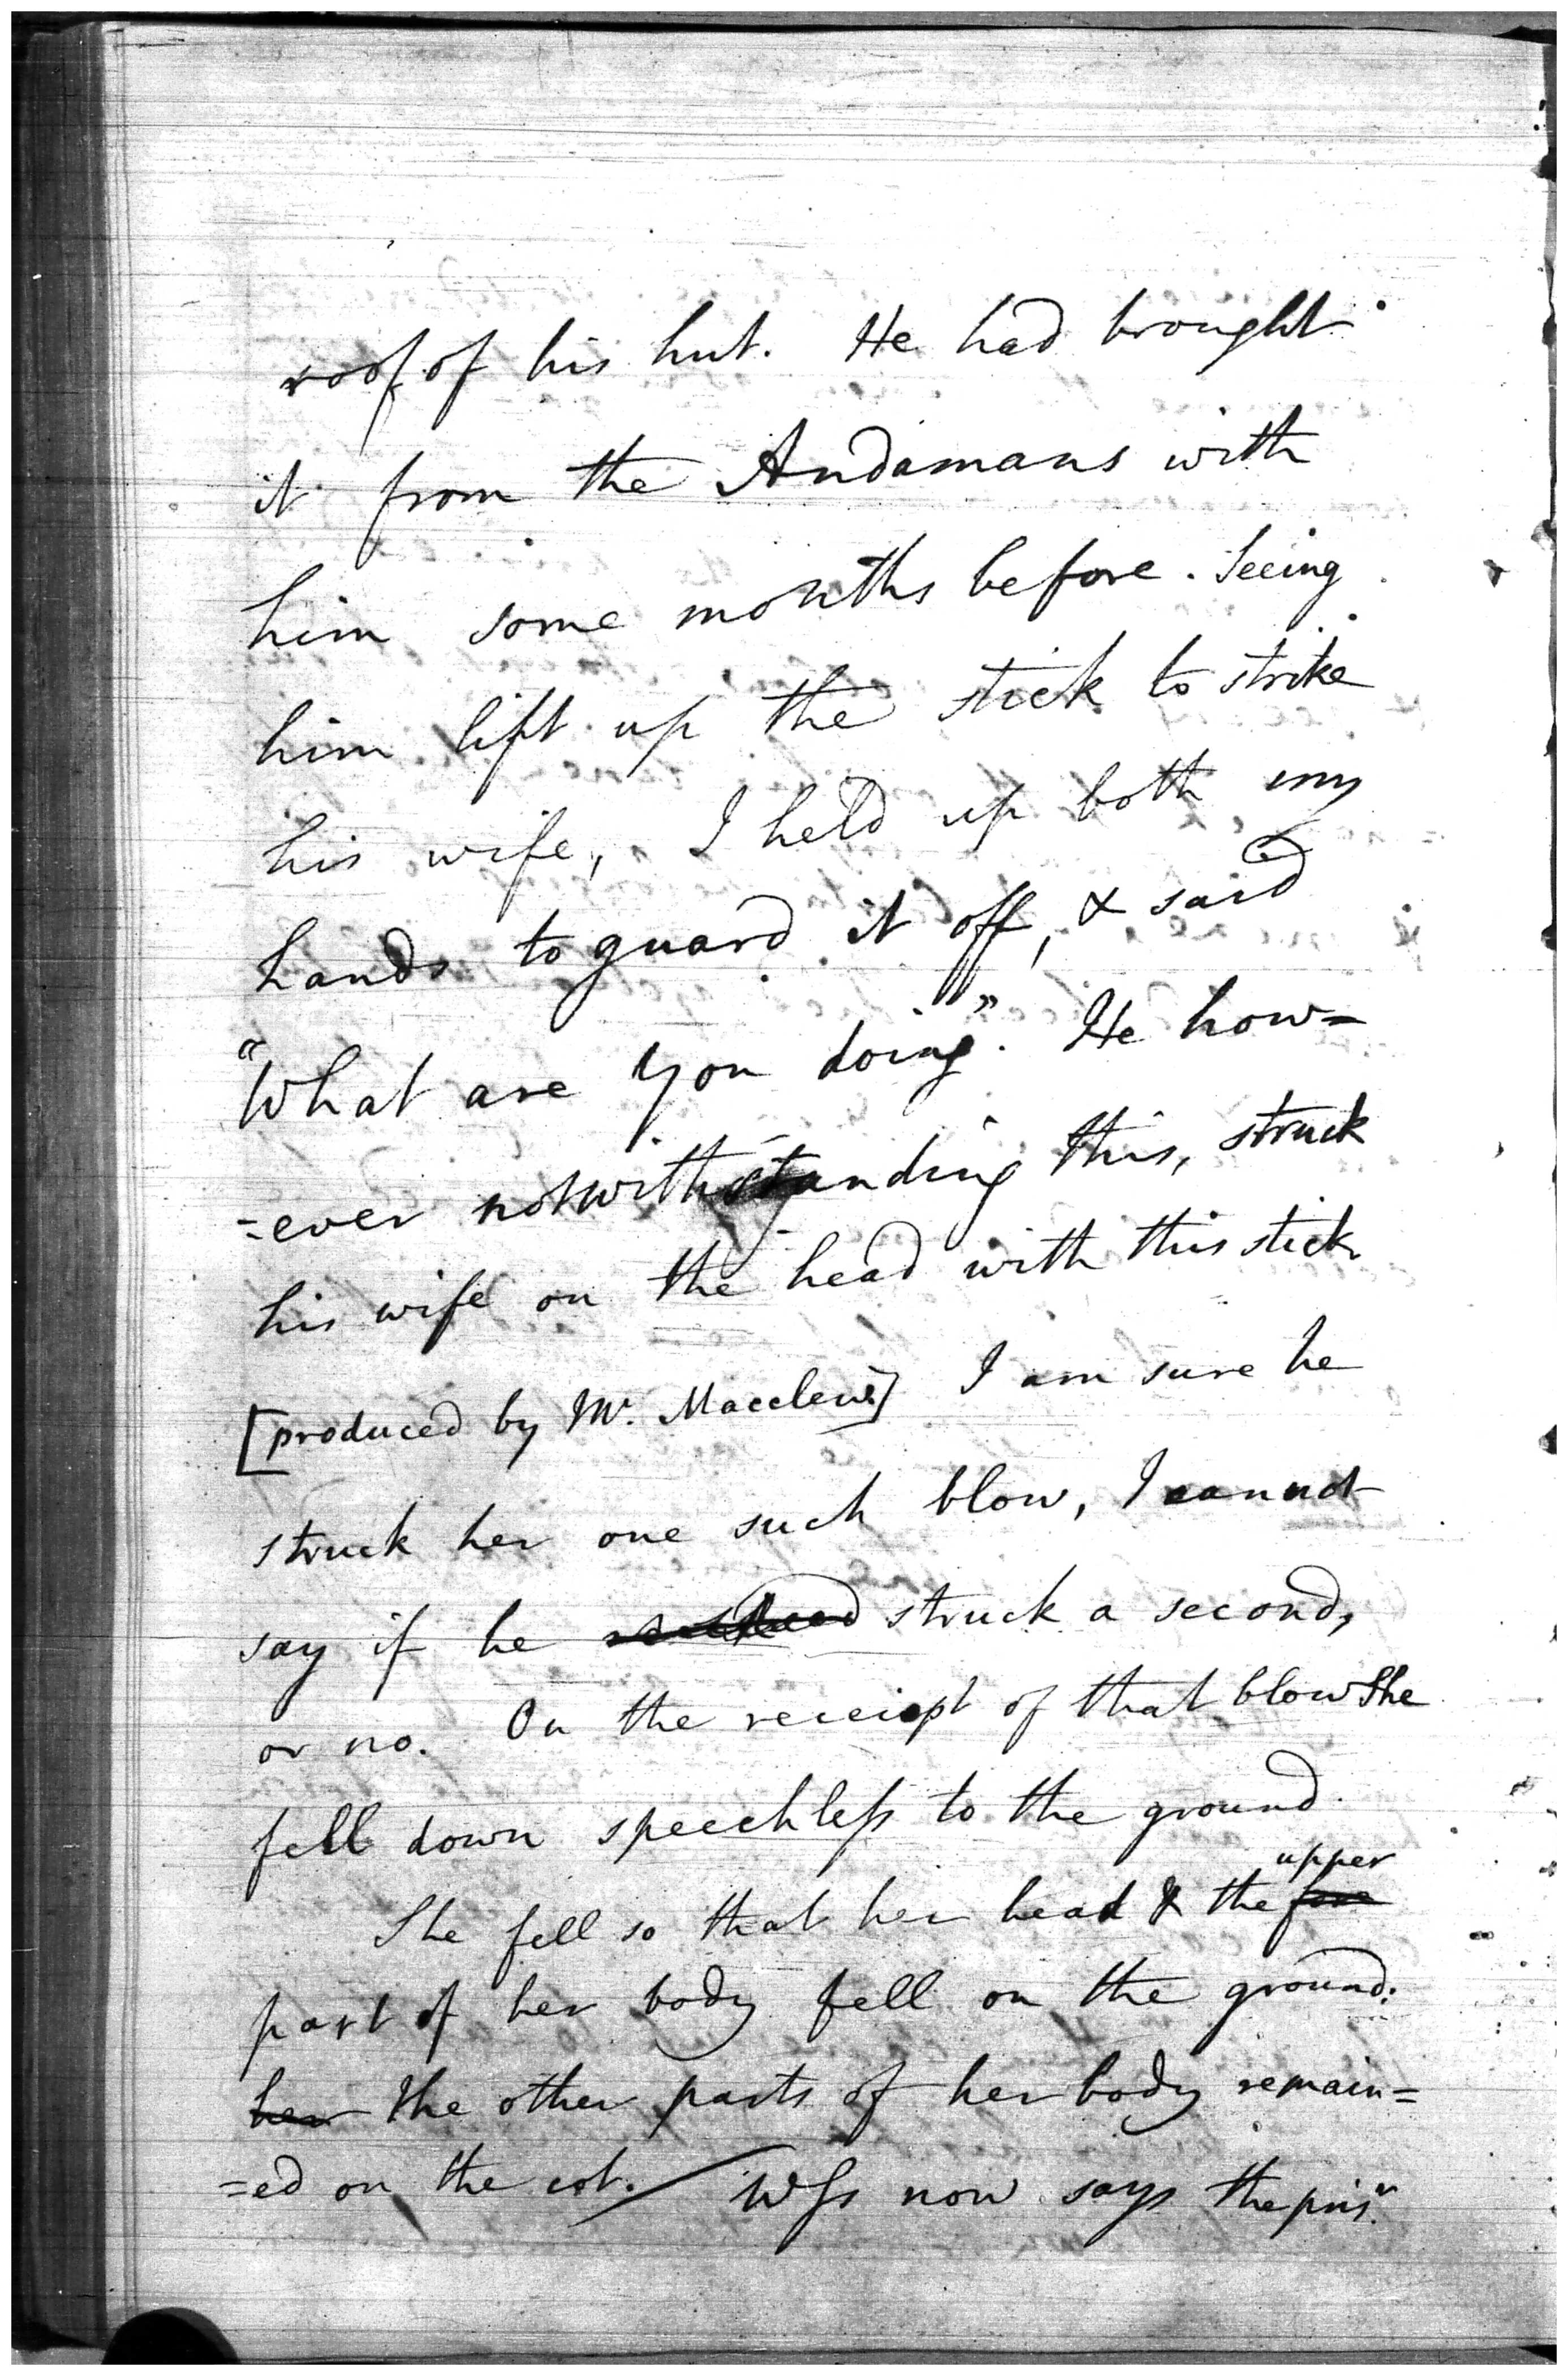 roof of his hut. He had brought
it from the Andamans with
him some months before. Seeing
him lift up the stick to strike
his wife, I held up both my
hands to guard it off, & said
"What are you doing". He how=
=ever notwithstanding this, struck
his wife on the head with this stick
[produced by Mr. Macclew.] I am sure he
struck her one such blow, I cannot
say if he struck a second,
or no. On the receipt of that blow She
fell down speechless to the ground.
She fell so that her head & the fore upper
part of her body fell on the ground:
her the other parts of her body remain=
=ed on the cot. / Wss now says the prisr.